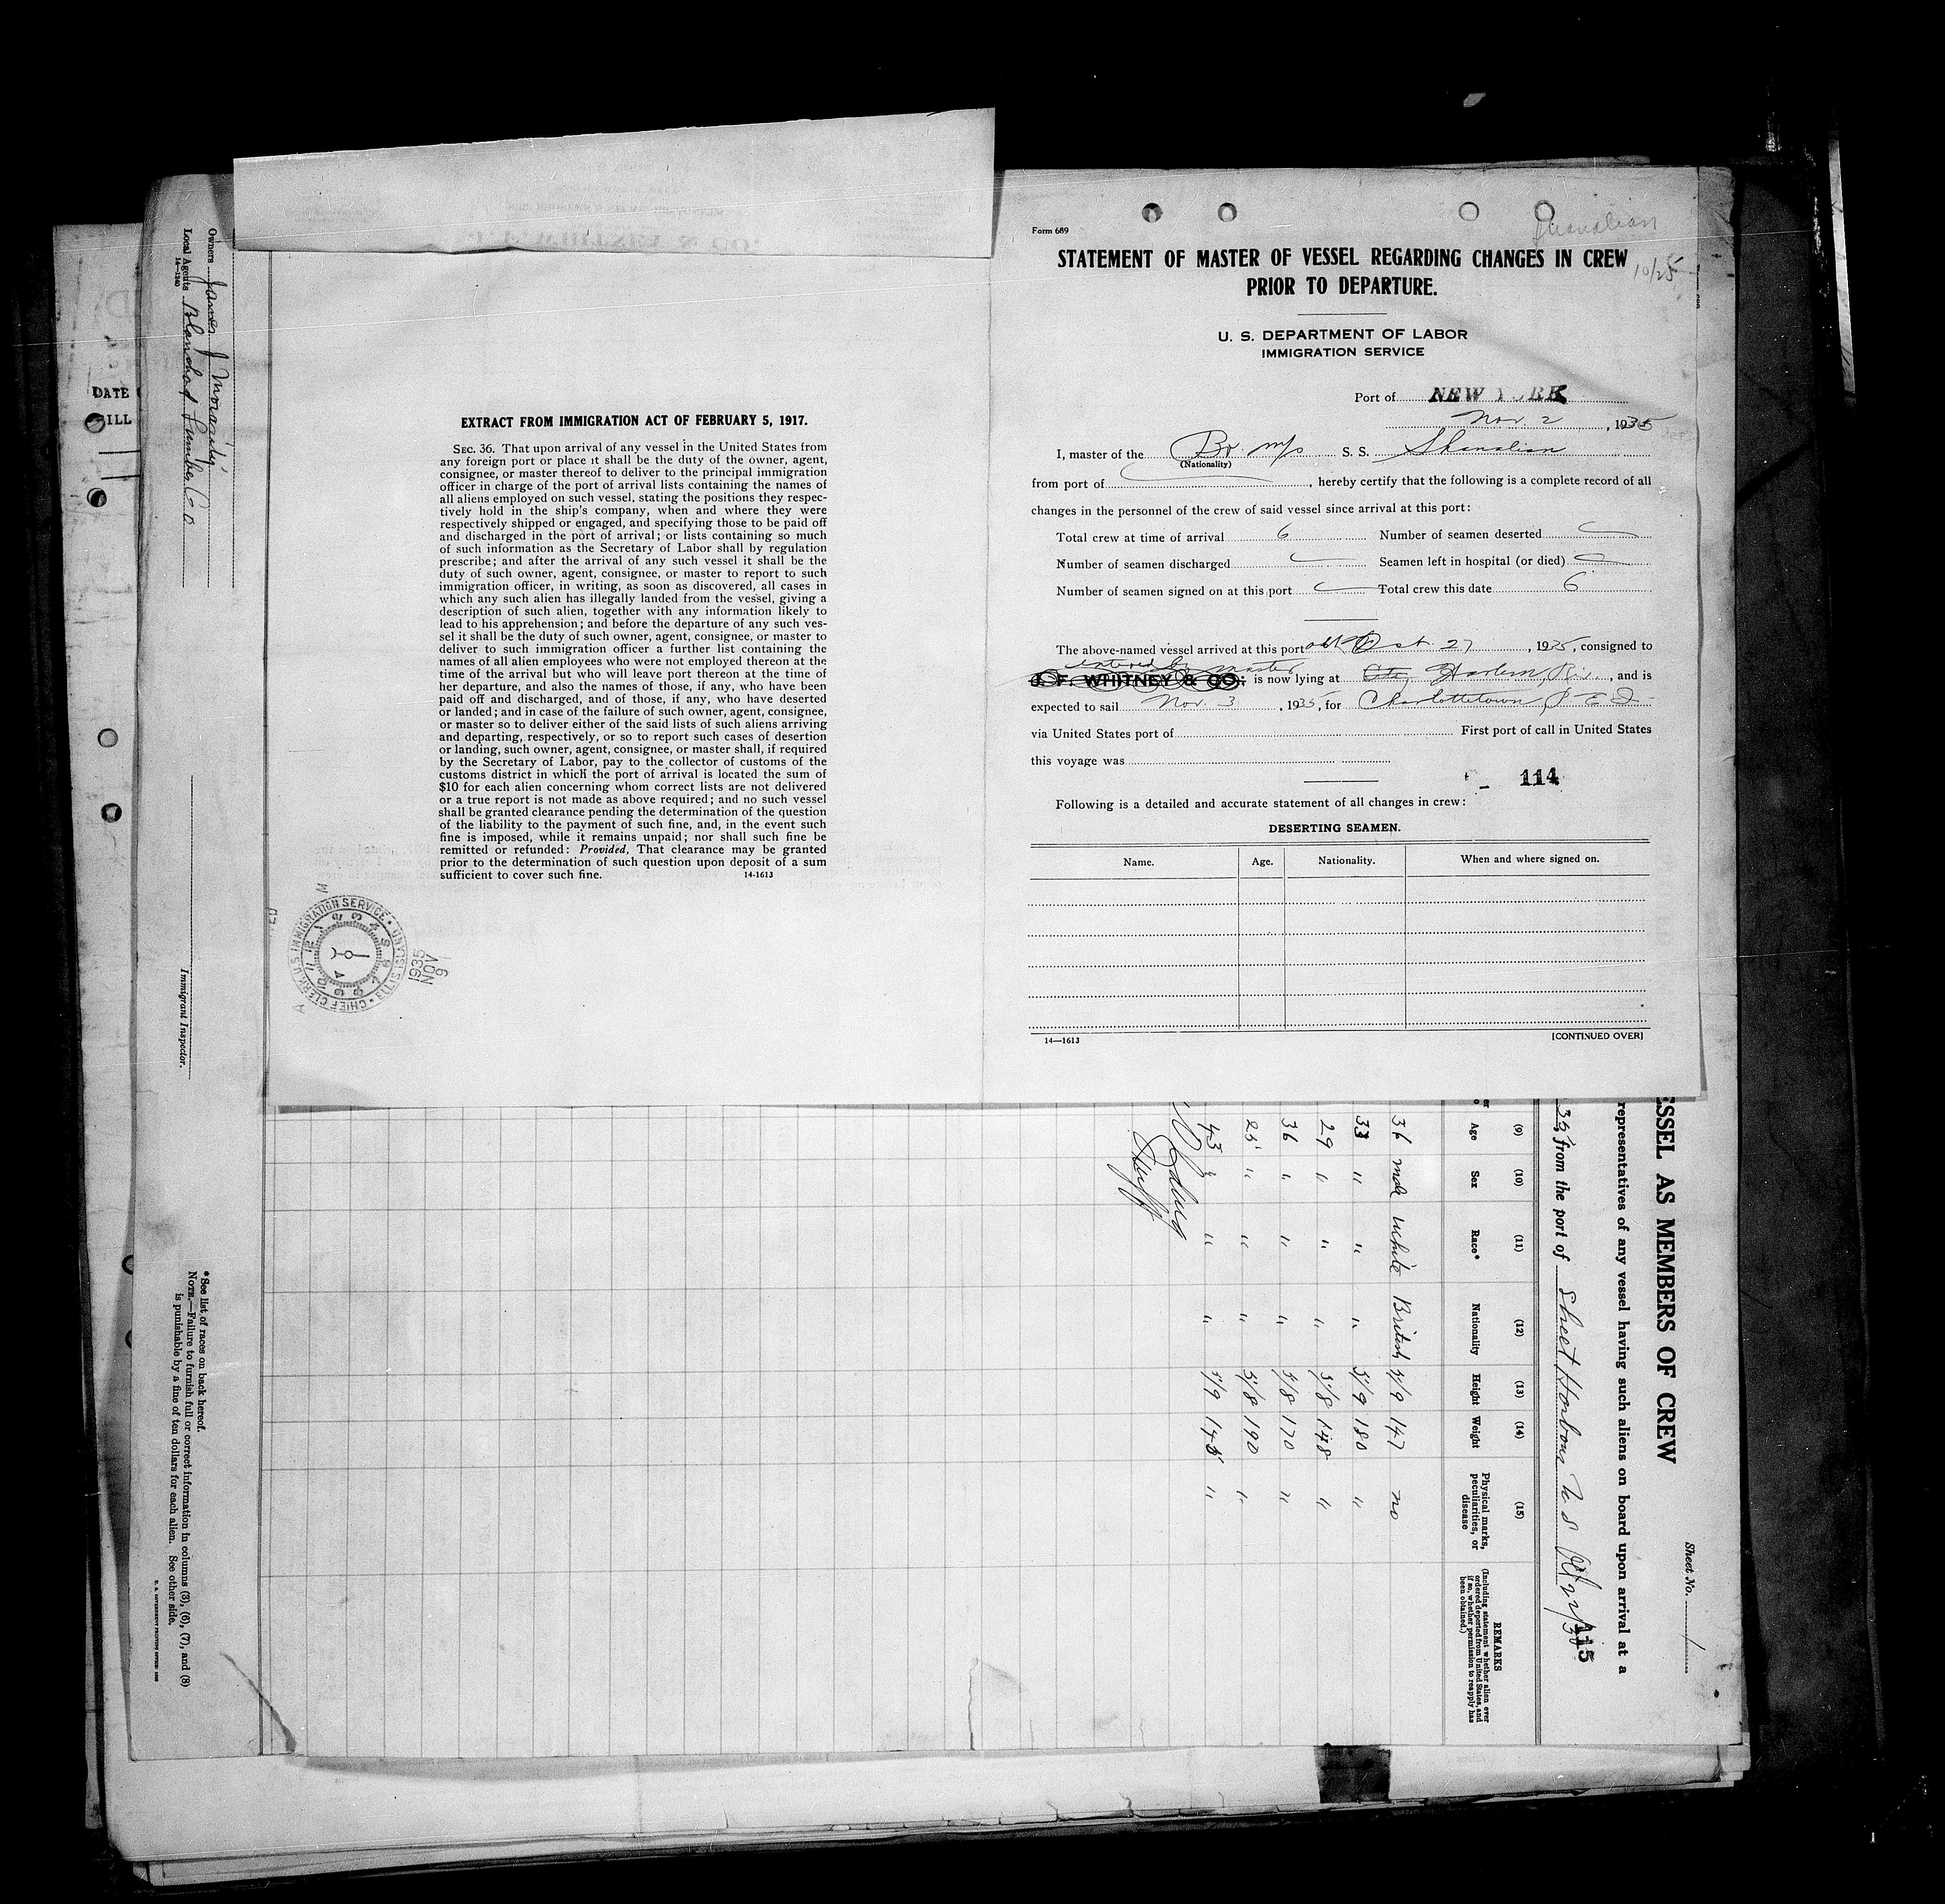 Form 689
Shanalian
10/25
STATEMENT OF MASTER OF VESSEL REGARDING CHANGES IN CREW
PRIOR TO DEPARTURE.
U. S. DEPARTMENT OF LABOR
IMMIGRATION SERVICE
Port of NEW YORK
Nov. 2, 1935
I, master of the Br. m/s S. S. Shanalian
(Nationality)
from port of , hereby certify that the following is a complete record of all
changes in the personnel of the crew of said vessel since arrival at this port:
Total crew at time of arrival 6 Number of seamen deserted
Number of seamen discharged Seamen left in hospital (or died)
Number of seamen signed on at this port Total crew this date 6
The above-named vessel arrived at this port Oct 27, 1935, consigned to
entered by master
J. F. WHITNEY & CO. is now lying at Harlem Riv., and is
expected to sail Nov. 3, 1935, for Charlottetown, P E I
via United States port of First port of call in United States
this voyage was
114
Following is a detailed and accurate statement of all changes in crew:
DESERTING SEAMEN.
Name. Age. Nationality. When and where signed on.
14—1613 [CONTINUED OVER]
EXTRACT FROM IMMIGRATION ACT OF FEBRUARY 5, 1917.
SEC. 36. That upon arrival of any vessel in the United States from
any foreign port or place it shall be the duty of the owner, agent,
consignee, or master thereof to deliver to the principal immigration
officer in charge of the port of arrival lists containing the names of
all aliens employed on such vessel, stating the positions they respec-
tively hold in the ship's company, when and where they were
respectively shipped or engaged, and specifying those to be paid off
and discharged in the port of arrival; or lists containing so much
of such information as the Secretary of Labor shall by regulation
prescribe; and after the arrival of any such vessel it shall be the
duty of such owner, agent, consignee, or master to report to such
immigration officer, in writing, as soon as discovered, all cases in
which any such alien has illegally landed from the vessel, giving a
description of such alien, together with any information likely to
lead to his apprehension; and before the departure of any such ves-
sel it shall be the duty of such owner, agent, consignee, or master to
deliver to such immigration officer a further list containing the
names of all alien employees who were not employed thereon at the
time of the arrival but who will leave port thereon at the time of
her departure, and also the names of those, if any, who have been
paid off and discharged, and of those, if any, who have deserted
or landed; and in case of the failure of such owner, agent, consignee,
or master so to deliver either of the said lists of such aliens arriving
and departing, respectively, or so to report such cases of desertion
or landing, such owner, agent, consignee, or master shall, if required
by the Secretary of Labor, pay to the collector of customs of the
customs district in which the port of arrival is located the sum of
$10 for each alien concerning whom correct lists are not delivered
or a true report is not made as above required; and no such vessel
shall be granted clearance pending the determination of the question
of the liability to the payment of such fine, and, in the event such
fine is imposed, while it remains unpaid; nor shall such fine be
remitted or refunded: Provided, That clearance may be granted
prior to the determination of such question upon deposit of a sum
sufficient to cover such fine. 14-1613
CHIEF CLERK U.S. IMMIGRATION SERVICE • ELLIS ISLAND •
1935
NOV
9
DATE
Sheet No. 1
ESSEL AS MEMBERS OF CREW
representatives of any vessel having such aliens on board upon arrival at a
35, from the port of Sheet Harbour N S
115
(9) (10) (11) (12) (13) (14) (15)
Age Sex Race* Nationality Height Weight Physical marks, peculiarities, or disease
REMARKS
(Including statement whether alien ever ordered deported from United States, and if so, whether permission to reapply has been obtained.)
36 male White British 5/9 147 no
33 " " " 5/9 180 "
29 " " " 5/8 148 "
36 " " " 5/8 170 "
25 " " " 5/8 190 "
43 " " " 5/9 145 "
Owners James J Moriarity
Local Agents Blanchad Lumber Co
14—1240
Immigrant Inspector.
*See list of races on back hereof.
NOTE.—Failure to furnish full or correct information in columns (3), (6), (7), and (8)
is punishable by a fine of ten dollars for each alien. See other side.
U. S. GOVERNMENT PRINTING OFFICE